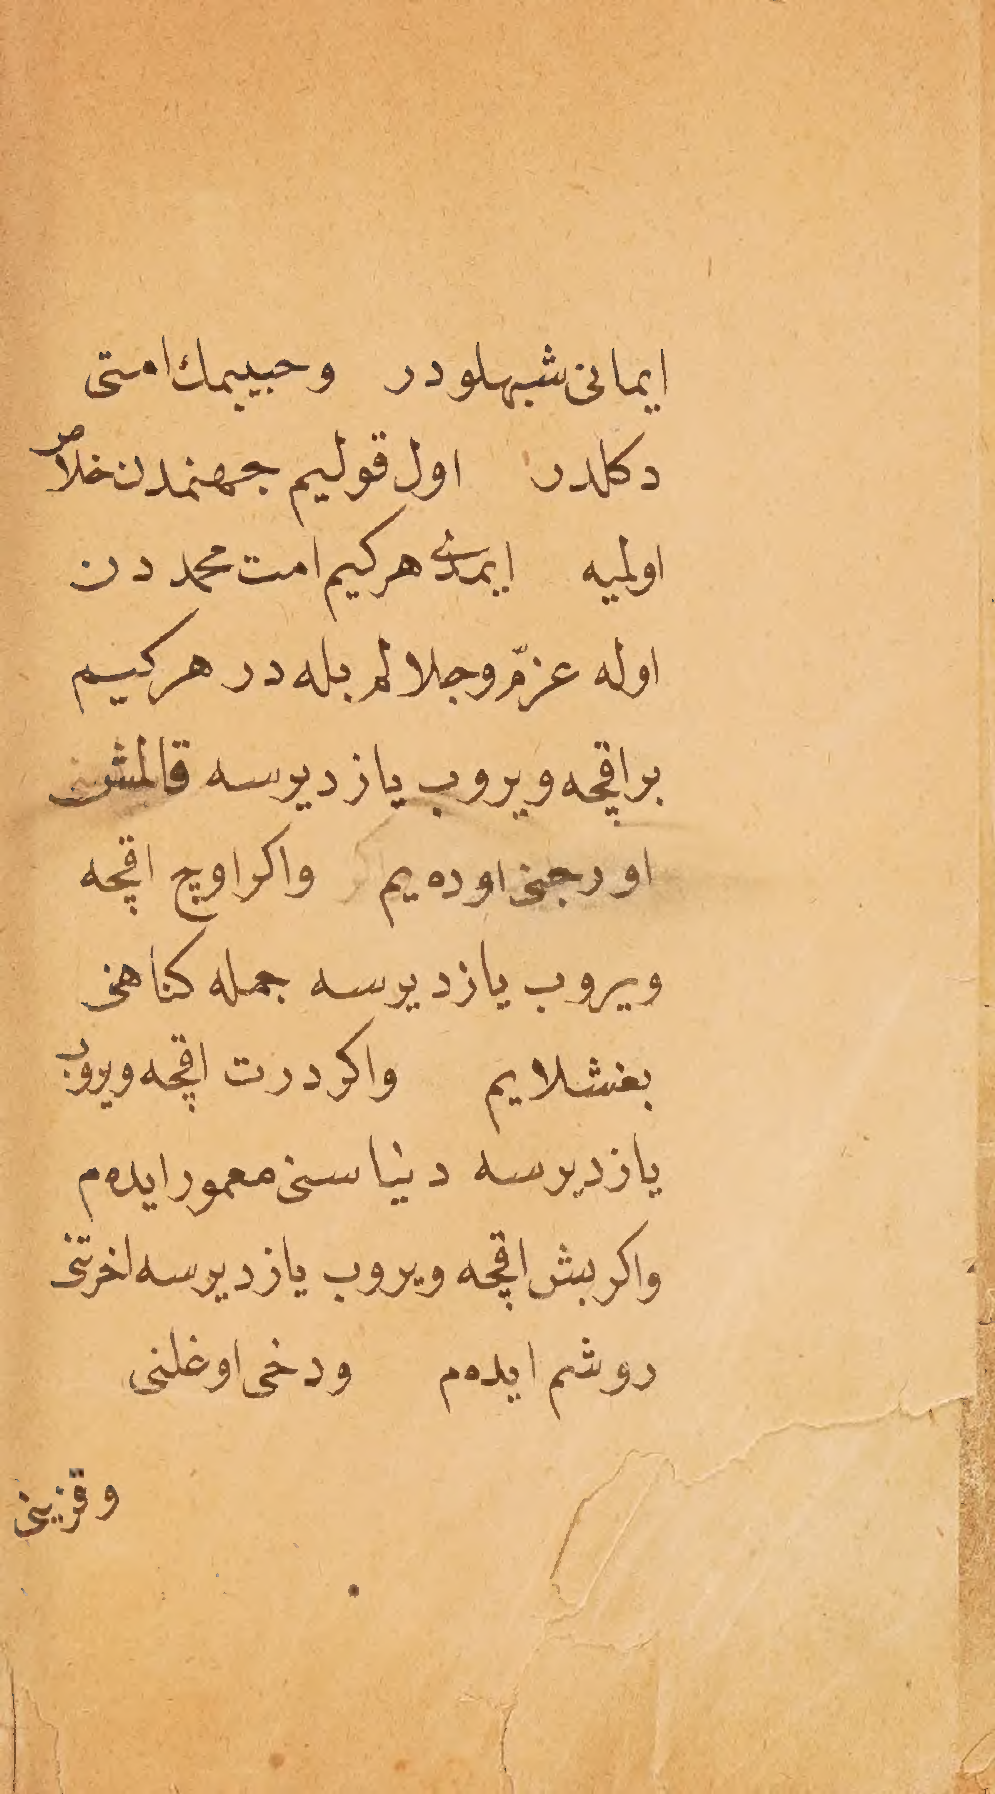 ایمانی شبهلودر وحبیبمك امتی
دكلدر اول قولیم جهنمدن خلاص
اولمیه ایمدی هركیم امت محمد دن
اوله عزّم وجلالم بله در هركیم
بر اقچه ویروب یازدیرسه قالمشنی
اورجنی اوده یم واكر اوچ اقچه
ویروب یازدیرسه جمله كناهنی
بغشلایم واكر درت اقچه ویروب
یازدیرسه دنیاسنی معمور ایده م
واكر بش اقچه ویروب یازدیرسه اخرتنی
روشم ایده م ودخی اوغلنی
وقزینی